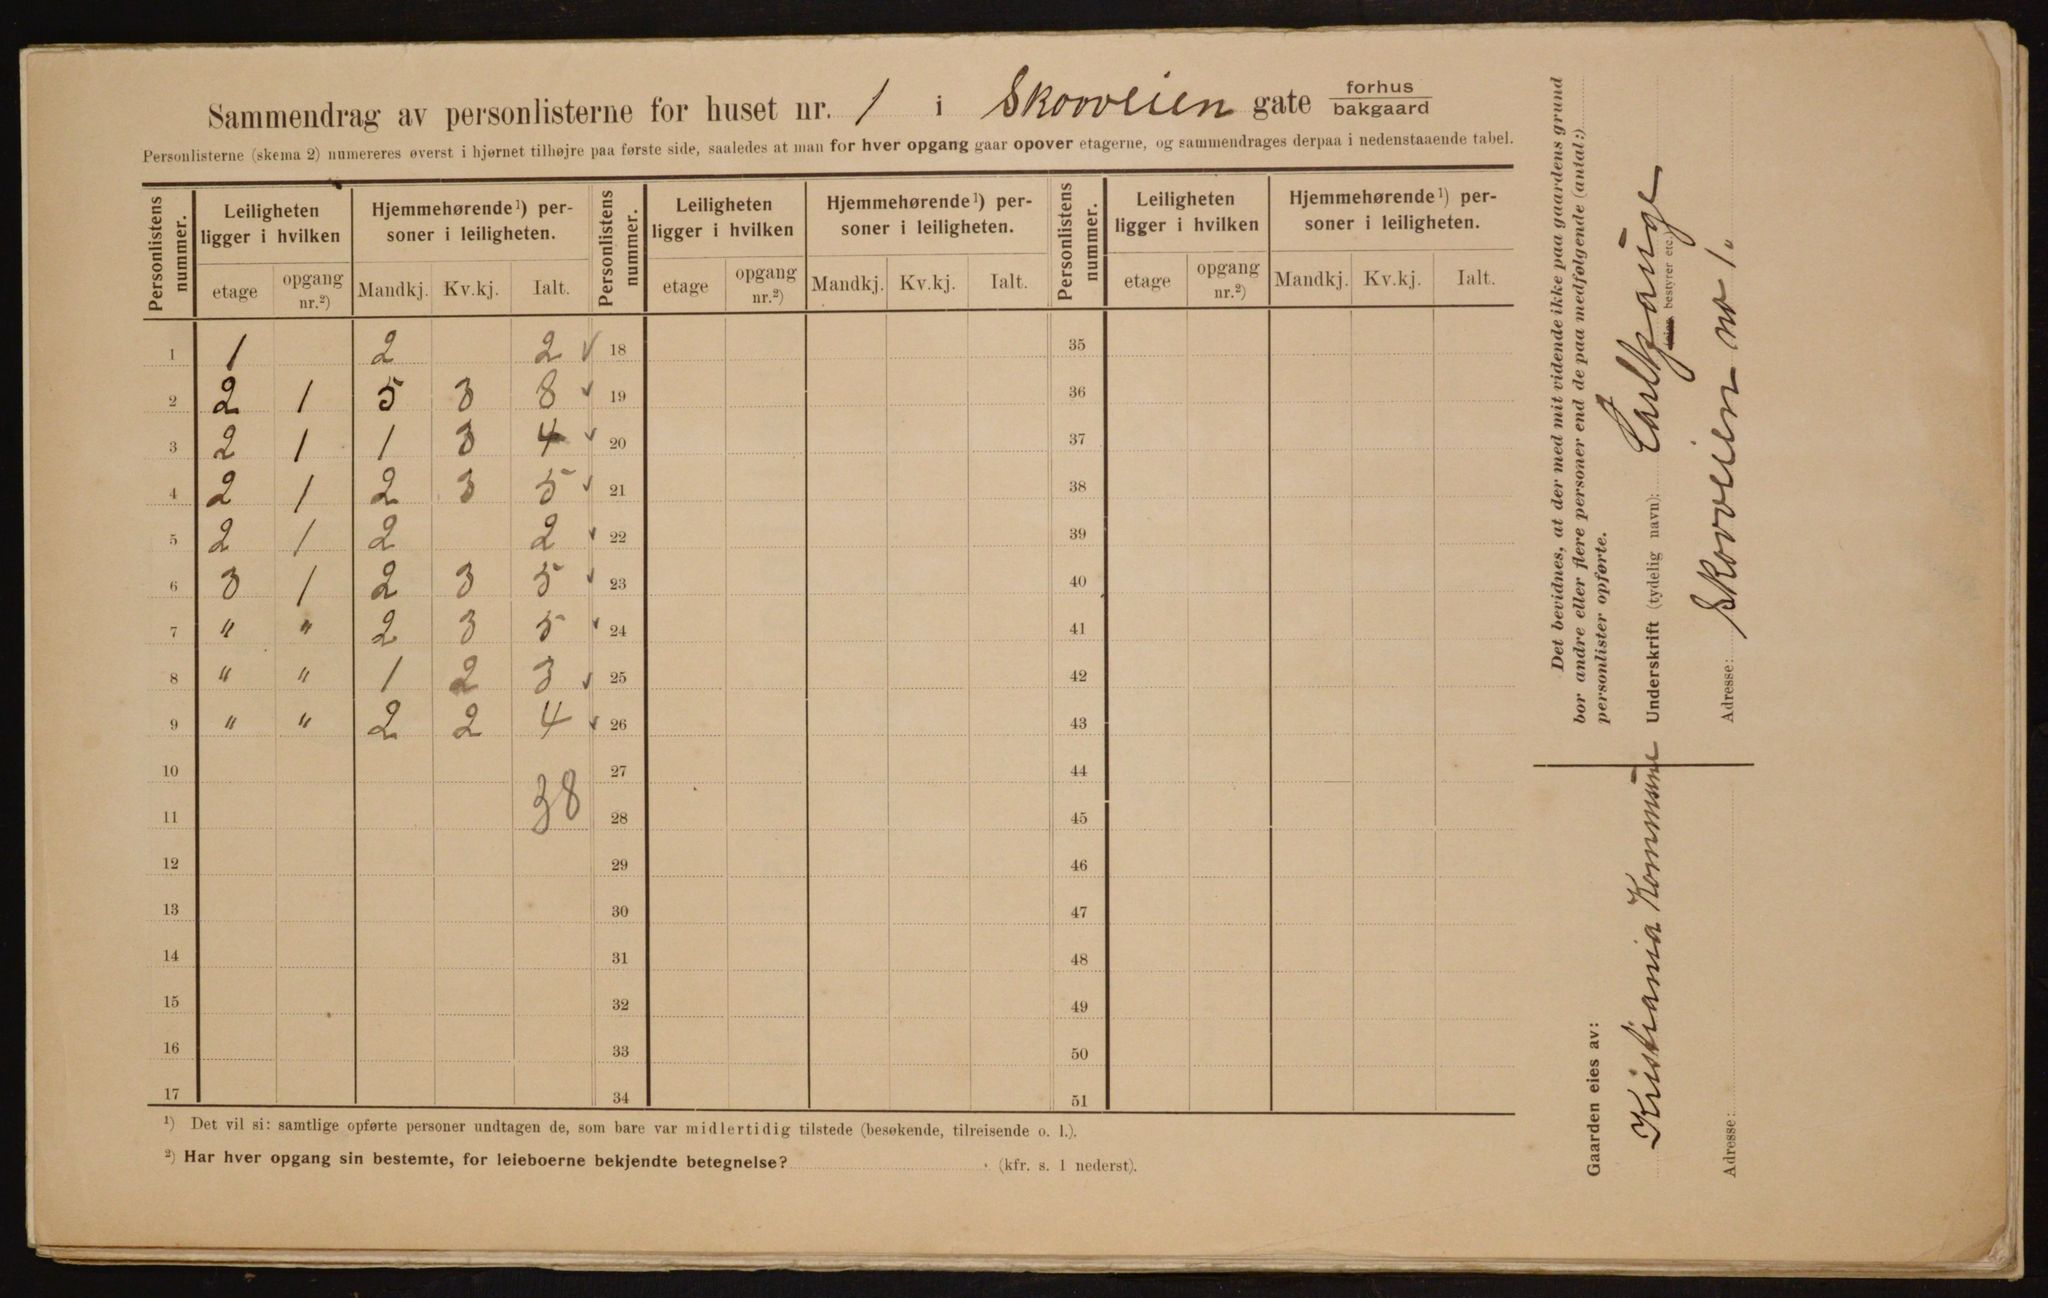 Sammendrag av personlisterne for huset nr. 1 i Skovveien gate forhus bakgaard
Personlisterne (skema 2) numereres øverst i hjørnet tilhøjre paa første side, saaledes at man for hver opgang gaar opover etagerne, og sammendrages derpaa i nedenstaaende tabel.
Personlistens nummer. Leiligheten ligger i hvilken Hjemmehørende ¹) personer i leiligheten. Personlistens nummer. Leiligheten ligger i hvilken Hjemmehørende ¹) personer i leiligheten. Personlistens nummer. Leiligheten ligger i hvilken Hjemmehørende ¹) personer i leiligheten.
etage opgang nr.²) Mandkj. Kv.kj. Ialt. etage opgang nr.²) Mandkj. Kv.kj. Ialt. etage opgang nr.²) Mandkj. Kv.kj. Ialt.
1 1 2 2 ✓ 18 35
2 2 1 5 3 8 ✓ 19 36
3 2 1 1 3 4 ✓ 20 37
4 2 1 2 3 5 ✓ 21 38
5 2 1 2 2 ✓ 22 39
6 3 1 2 3 5 ✓ 23 40
7 " " 2 3 5 ✓ 24 41
8 " " 1 2 3 ✓ 25 42
9 " " 2 2 4 ✓ 26 43
10 27 44
38
11 28 45
12 29 46
13 30 47
14 31 48
15 32 49
16 33 50
17 34 51
¹) Det vil si: samtlige opførte personer undtagen de, som bare var midlertidig tilstede (besøkende, tilreisende o. l.).
²) Har hver opgang sin bestemte, for leieboerne bekjendte betegnelse? (kfr. s. 1 nederst).
Det bevidnes, at der med mit vidende ikke paa gaardens grund
bor andre eller flere personer end de paa medfølgende (antal:)
personlister opførte.
Underskrift (tydelig navn): Carl
bestyrer etc.)
Adresse: Skovveien no 1.
Gaarden eies av:
Kristiania Kommune
Adresse: